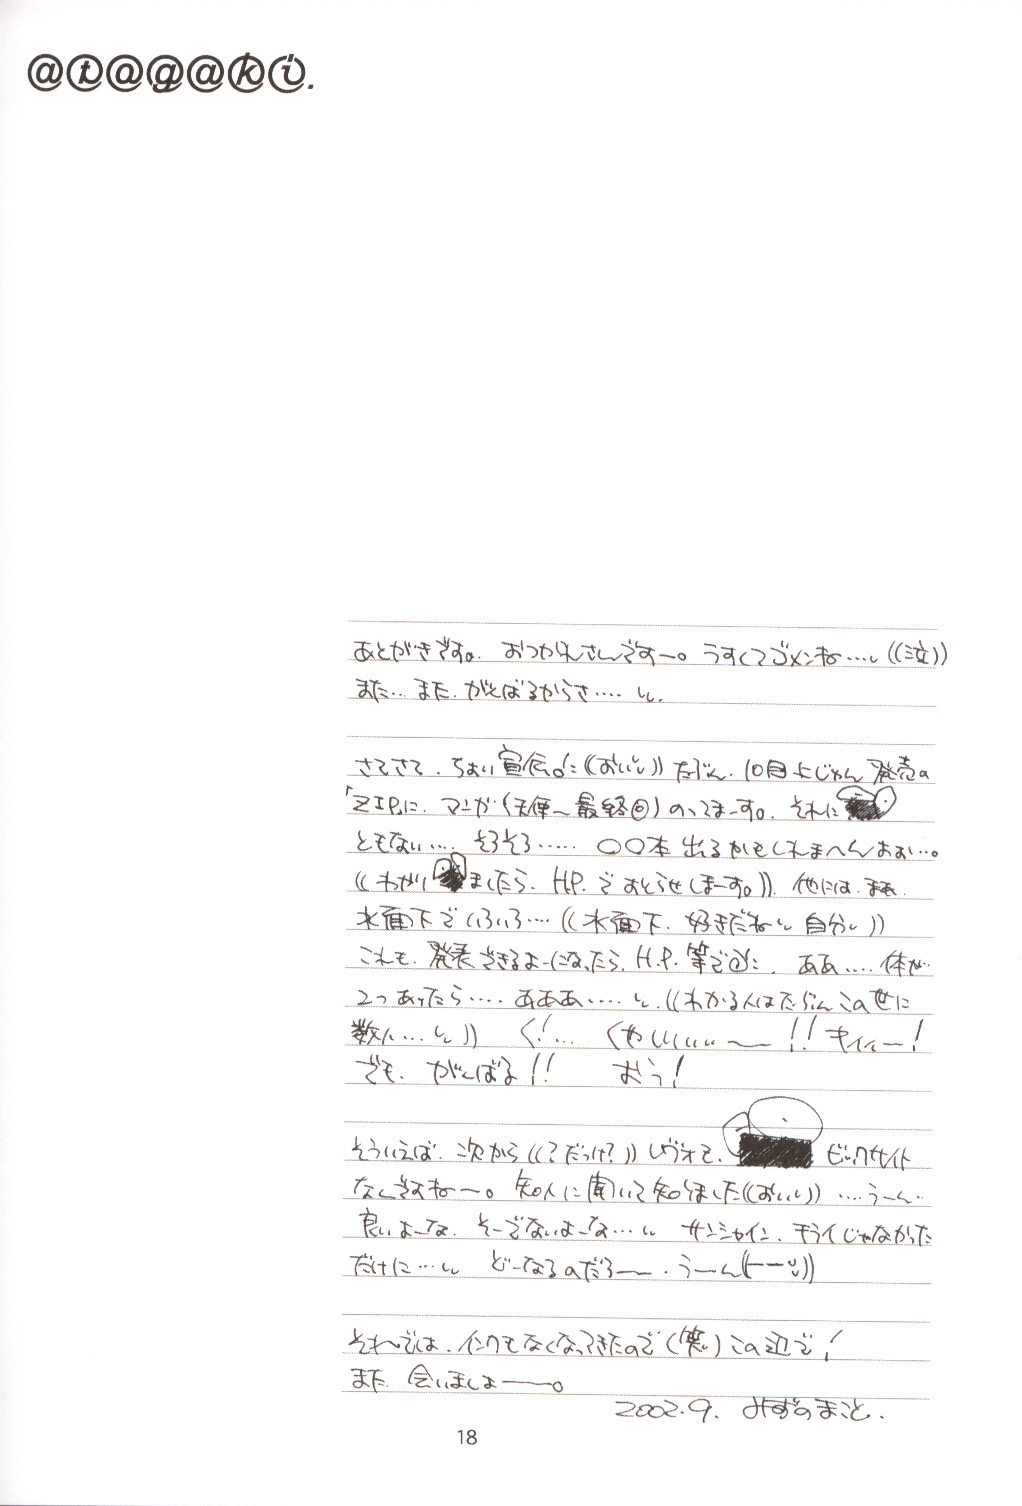 @t@g@ki.
あとがきです。おつかれさんですー。うすくてゴメンね…。((泣))
また…また、がんばるからさ….
さてさて、ちょい宣伝。((おいい))たぶん、10月上じゅん発売の
「ZIP」に、マンガ(天使〜最終回)のってまーす。それに
ともない…、そろそろ…… 〇〇本出るかもしれまへんおぉ…。
((わかりましたら、H.P.でおとらせしまーす。))他には、まぁ
水面下でいろいろ…((水面下、好きだね 自分))
これも、発表できるよーになったら、H.P.等で ああ……体が
2つあったら…… あああ……((わかる人はたぶんこの世に
数人…)) く!… くやしいいい〜!!キィィー!
でも、がんばる!! おぅ!
そういえば、次から((?だっけ?))レヴォて、ビックサイト
なんですよねー。知人に聞いて知りました((おいい))…うーん…
良いよーな、そーでないよーな… サンシャイン、キライじゃなかった
だけに… どーなるのだろー、うーん
それでは、インクもなくなってきたので(笑)この辺で!
また、会いましょーー。
2002.9. みずのまこと.
18